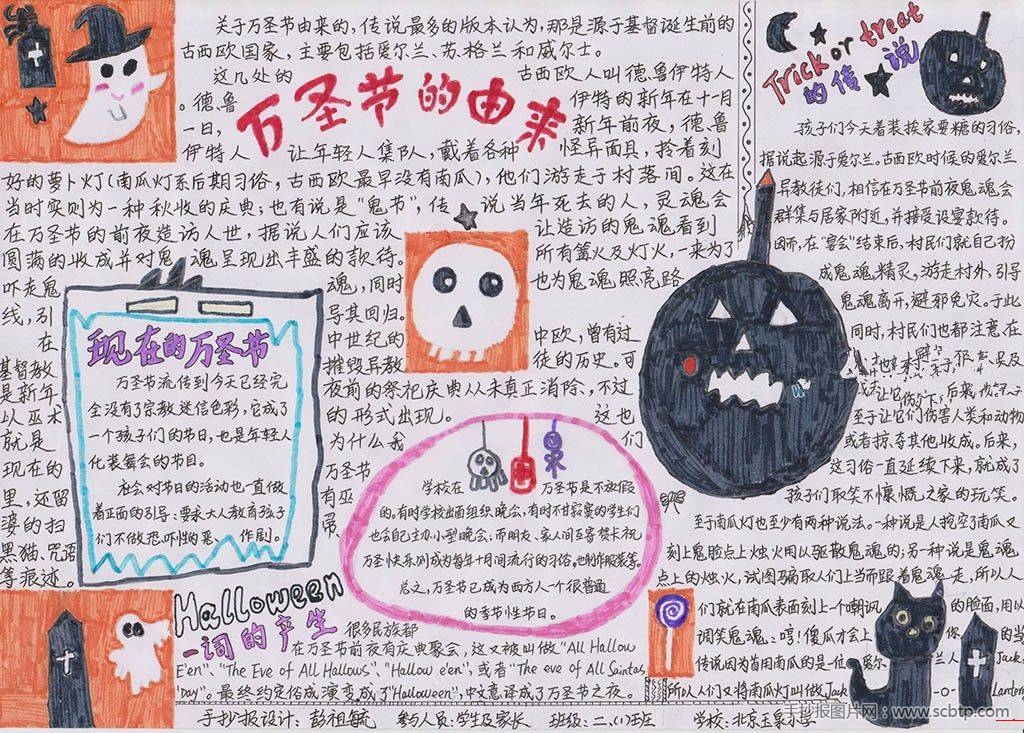 关于万圣节由来的,传说最多的版本认为,那是源于基督诞生前的
古西欧国家,主要包括爱尔兰、苏格兰和威尔士。
这几处的
古西欧人叫德鲁伊特人
。德鲁
伊特的新年在十一月
一日,
新年前夜,德鲁
万圣节的由来
伊特人
让年轻人集队,戴着各种
怪异面具,拎着刻
好的萝卜灯(南瓜灯系后期习俗,古西欧最早没有南瓜),他们游走于村落间。这在
当时实则为一种秋收的庆典;也有说是“鬼节”,传
说当年死去的人,灵魂会
在万圣节的前夜造访人世,据说人们应该
让造访的鬼魂看到
圆满的收成并对鬼
魂呈现出丰盛的款待。
所有篝火及灯火,一来为了
吓走鬼
魂,同时
也为鬼魂照亮路
线,引
导其回归。
在
中世纪的
中欧,曾有过
基督教
摧毁异教
徒的历史。可
是新年
夜前的祭祀庆典从未真正消除,不过
以巫术
的形式出现。
这也
就是
为什么我
们
现在的
万圣节
里,还留
有巫
婆的扫
帚、
黑猫、咒语
等痕迹。
现在的万圣节
万圣节流传到今天已经完
全没有了宗教迷信色彩,它成了
一个孩子们的节日,也是年轻人
化装舞会的节目。
社会对节日的活动也一直做
着正面的引导:要求大人教育孩子
们不做恐吓性的恶
作剧。
学校在
万圣节是不放假
的。有时学校出面组织晚会,有时不甘寂寞的学生们
也会自己主办小型晚会;而朋友、家人间互寄贺卡祝
万圣快乐则成为每年十月间流行的习俗,也制作服装等。
总之,万圣节已成为西方人一个很普通
的季节性节日。
Halloween
一词的产生
很多民族都
在万圣节前夜有庆典聚会,这又被叫做“All Hallow
E'en”、“The Eve of All Hallows”、“Hallow e'en”,或者“The eve of All Saintas'
Day”。最终约定俗成演变成了“Halloween”,中文意译成了万圣节之夜。
Trick or treat
的传说
孩子们今天着装挨家要糖的习俗,
据说起源于爱尔兰。古西欧时候的爱尔兰
异教徒们,相信在万圣节前夜鬼魂会
群集与居家附近,并接受设宴款待。
因而,在“宴会”结束后,村民们就自己扮
成鬼魂精灵,游走村外,引导
鬼魂离开,避邪免灾。于此
同时,村民们也都注意在
至于让它们伤害人类和动物
或者掠夺其他收成。后来,
这习俗一直延续下来,就成了
孩子们取笑不慷慨之家的玩笑。
至于南瓜灯也至少有两种说法。一种说是人挖空了南瓜又
刻上鬼脸点上烛火用以驱散鬼魂的;另一种说是鬼魂
点上的烛火,试图骗取人们上当而跟着鬼魂走,所以人
们就在南瓜表面刻上一个嘲讽
的脸面,用以
调笑鬼魂:哼!傻瓜才会上
你
的当
传说因为首用南瓜的是一位
爱尔
兰人
Jack,
所以人们又将南瓜灯叫做Jack
-o-
Lantern
手抄报设计:彭祖毓 参与人员:学生及家长 班级:二、(1)
学校:北京玉泉小学
手抄报图片网:www.scbtp.com